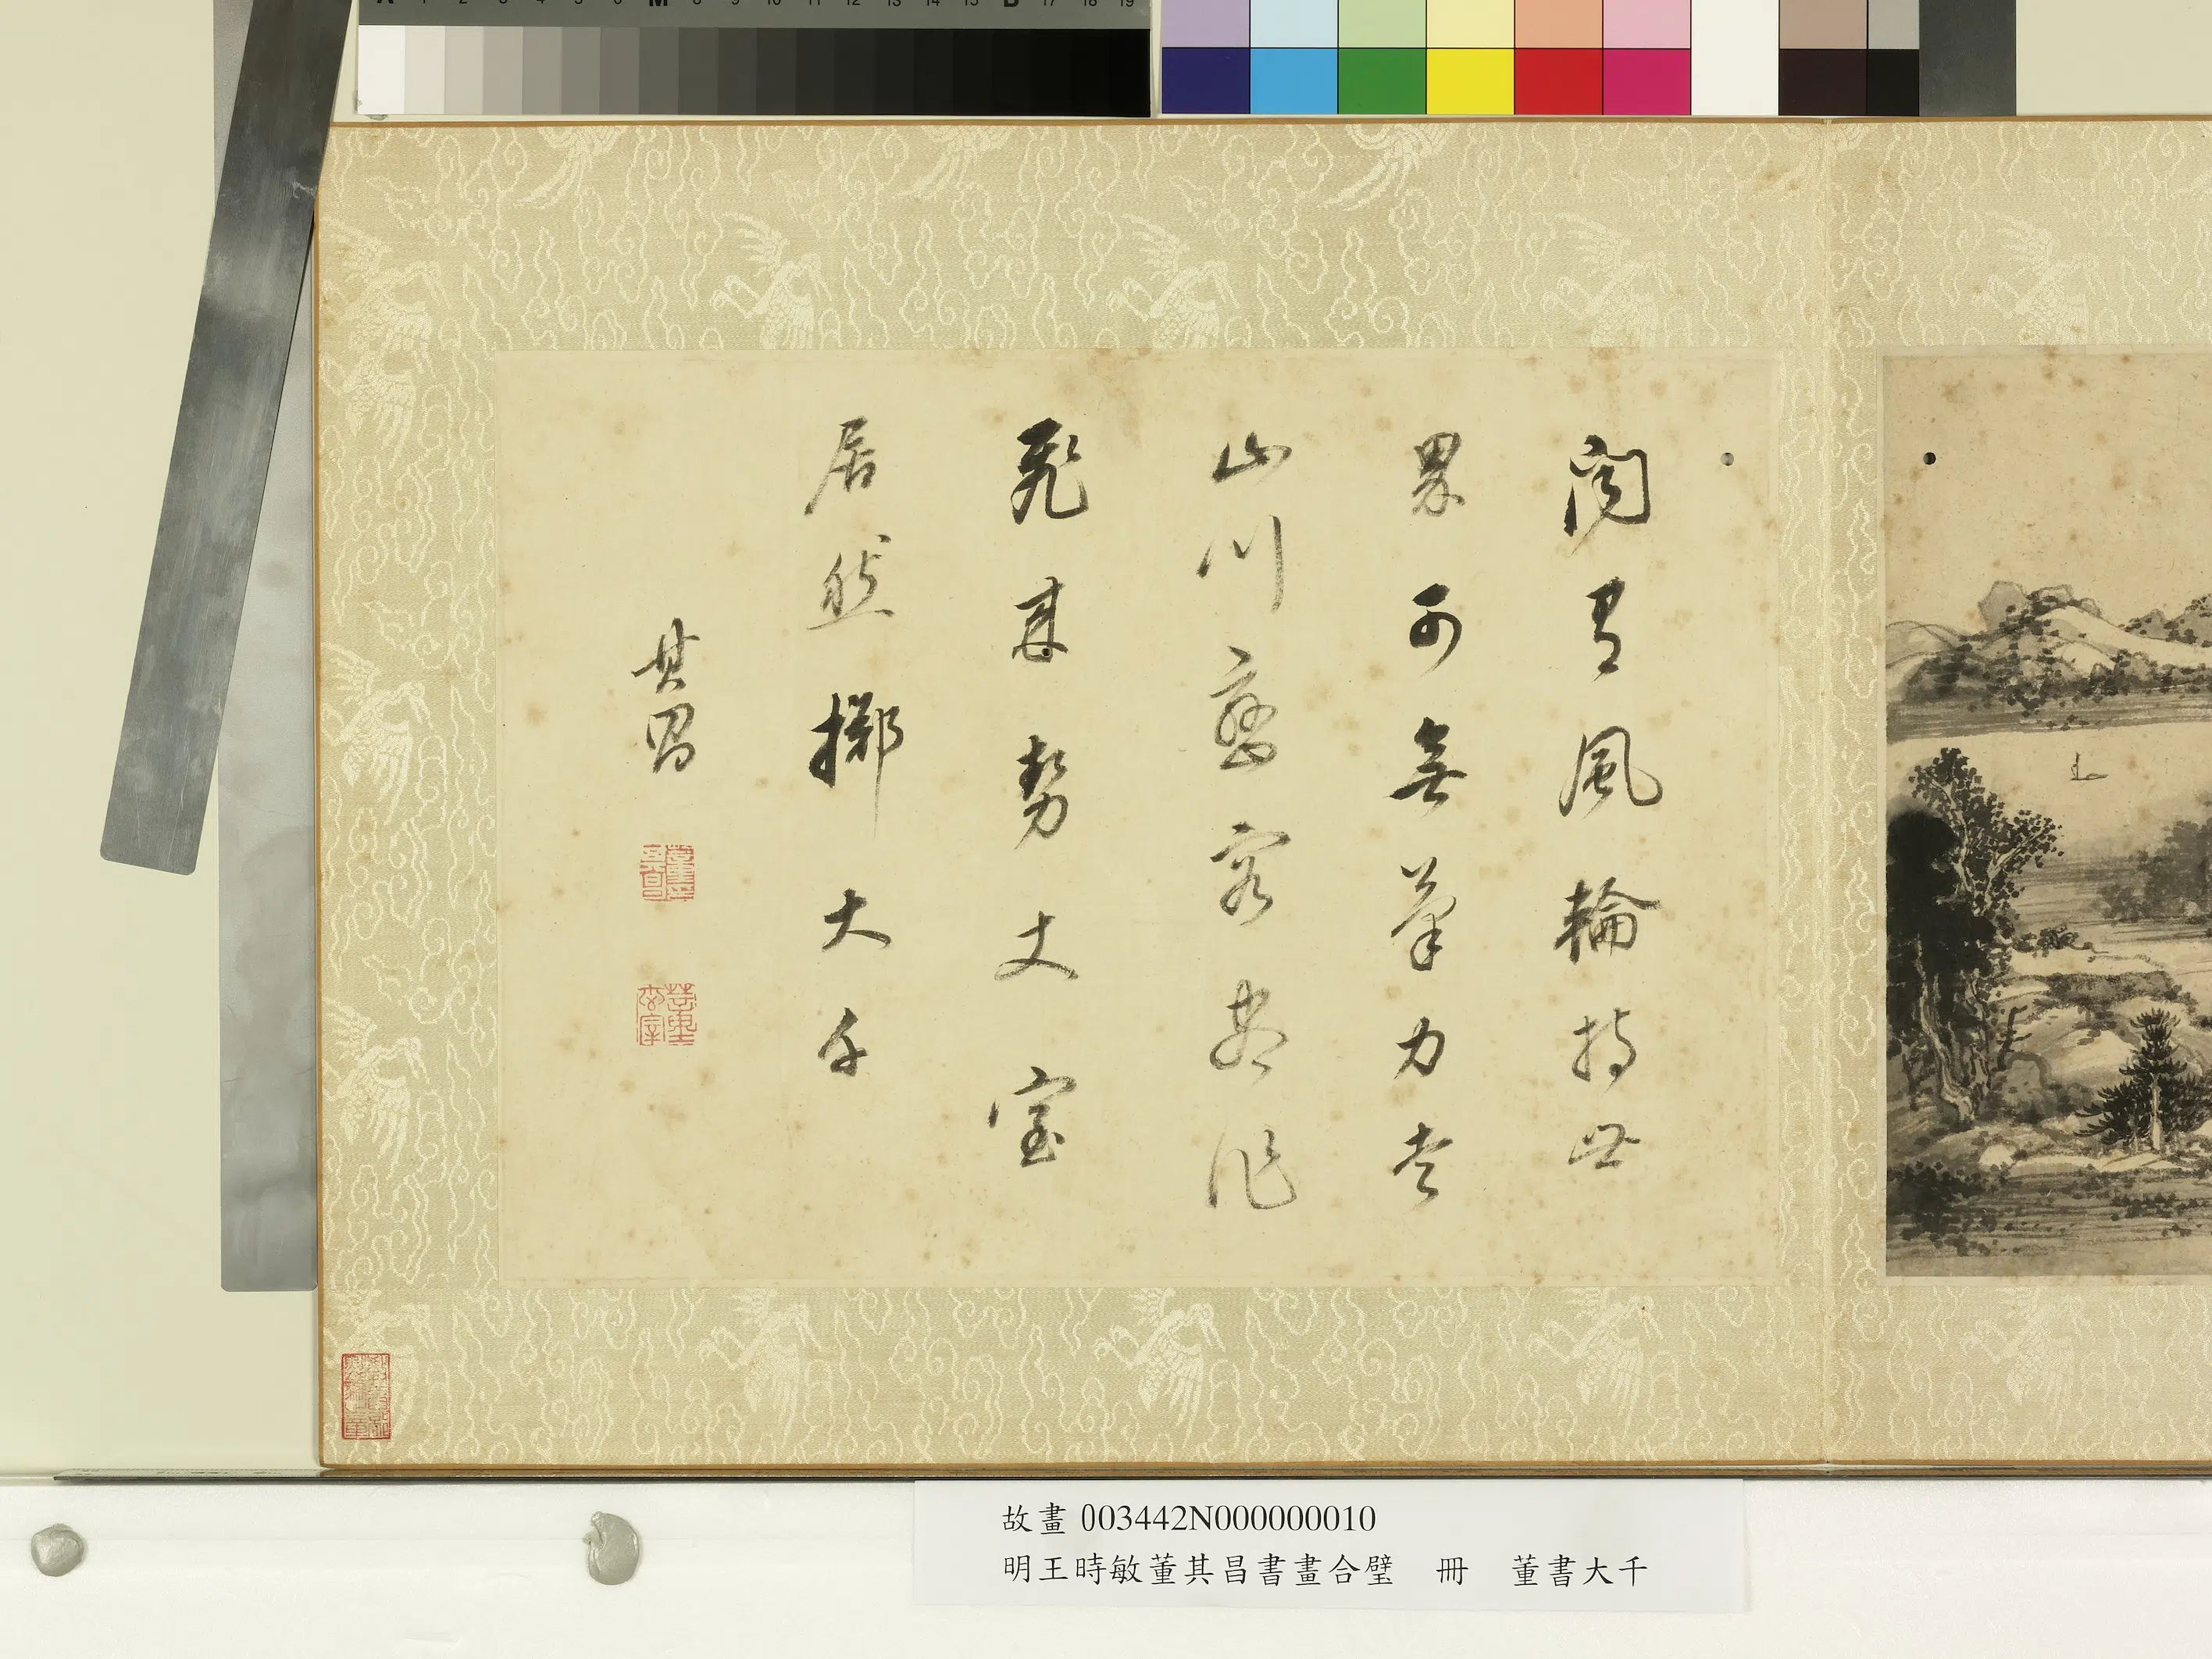 A 1 2 3 4 5 6 M 8 9 10 11 12 13 14 15 B 17 18 19
聞有風輪持世
界可無筆力走
山川巒容盡作
飛來勢丈室
居然擲大千
其昌
故畫003442N000000010
明王時敏董其昌書畫合璧　冊　董書大千